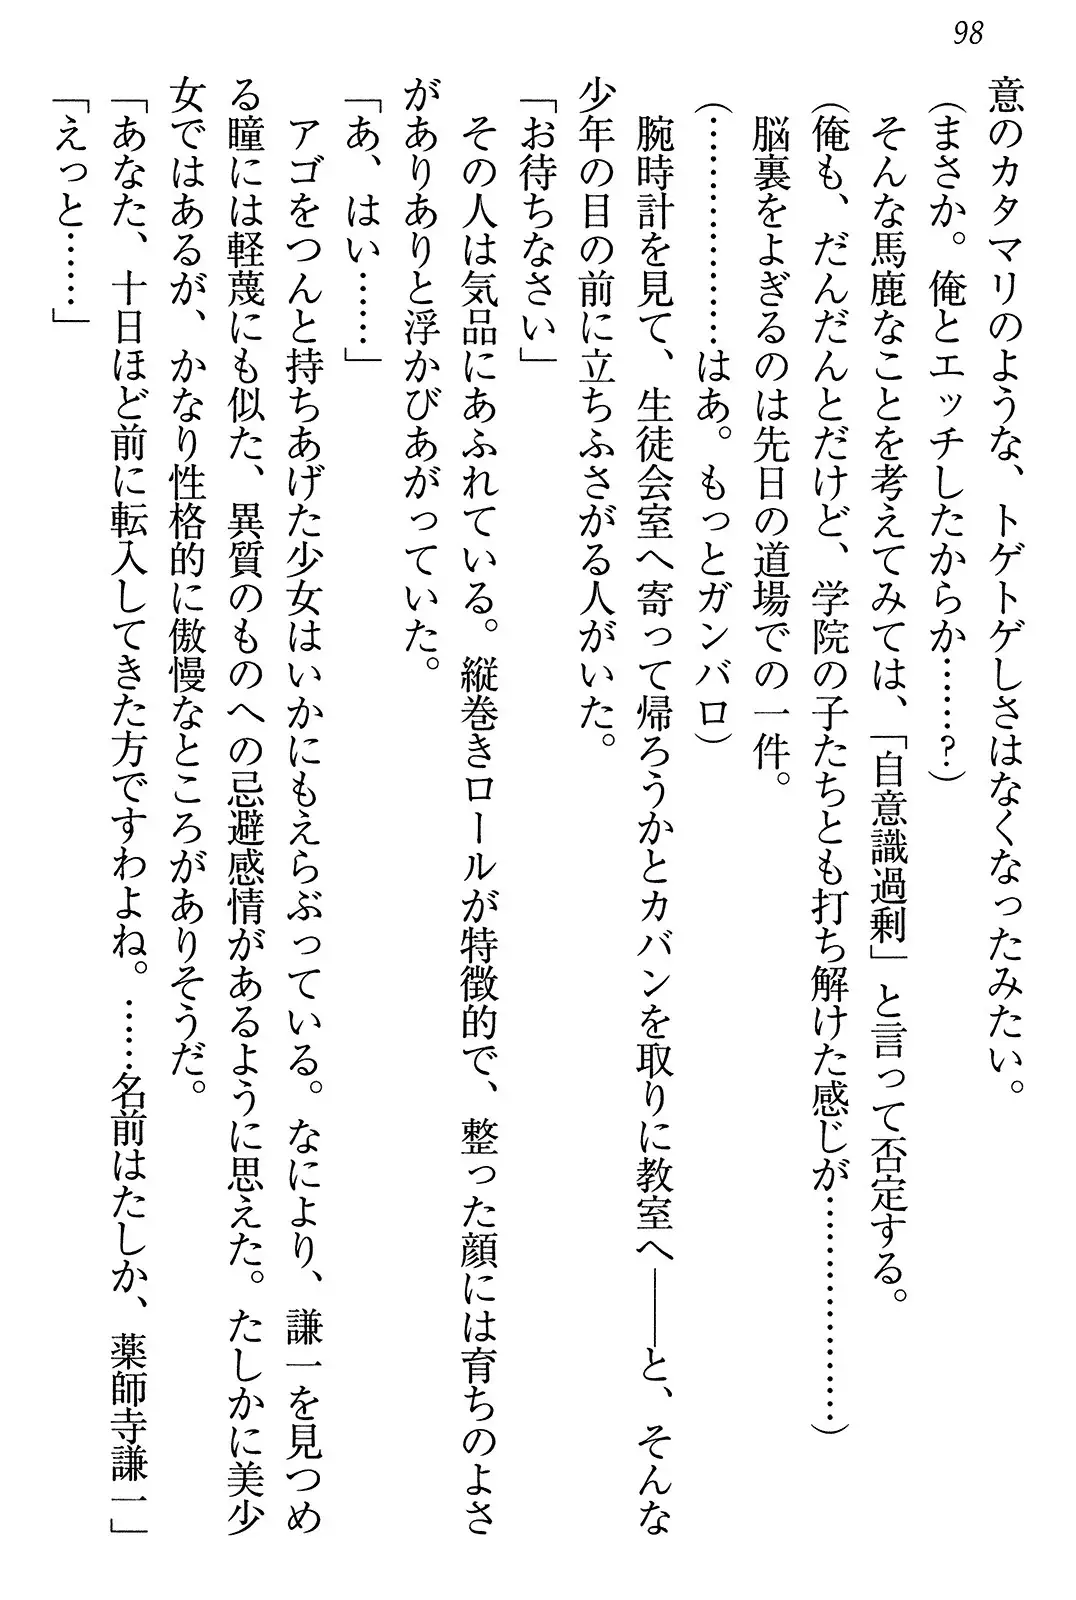 98
意のカタマリのような、トゲトゲしさはなくなったみたい。
（まさか。俺とエッチしたからか……？）
そんな馬鹿なことを考えてみては、「自意識過剰」と言って否定する。
（俺も、だんだんとだけど、学院の子たちとも打ち解けた感じが………………）
脳裏をよぎるのは先日の道場での一件。
（………………はあ。もっとガンバロ）
腕時計を見て、生徒会室へ寄って帰ろうかとカバンを取りに教室へ――と、そんな
少年の目の前に立ちふさがる人がいた。
「お待ちなさい」
その人は気品にあふれている。縦巻きロールが特徴的で、整った顔には育ちのよさ
がありありと浮かびあがっていた。
「あ、はい……」
アゴをつんと持ちあげた少女はいかにもえらぶっている。なにより、謙一を見つめ
る瞳には軽蔑にも似た、異質のものへの忌避感情があるように思えた。たしかに美少
女ではあるが、かなり性格的に傲慢なところがありそうだ。
「あなた、十日ほど前に転入してきた方ですわよね。……名前はたしか、薬師寺謙一」
「えっと……」